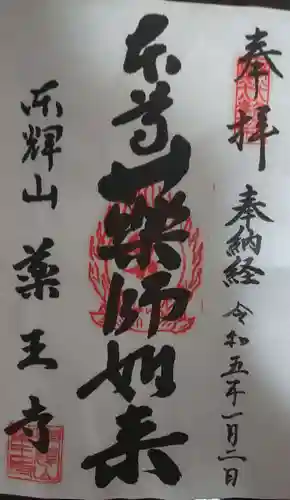 奉拝
奉納経 令和五年一月二日
本尊 薬師如来
東輝山 薬王寺